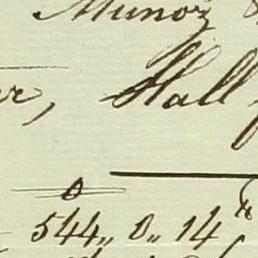 Munoz &
er, Hall f
0
544,, 0,, 14